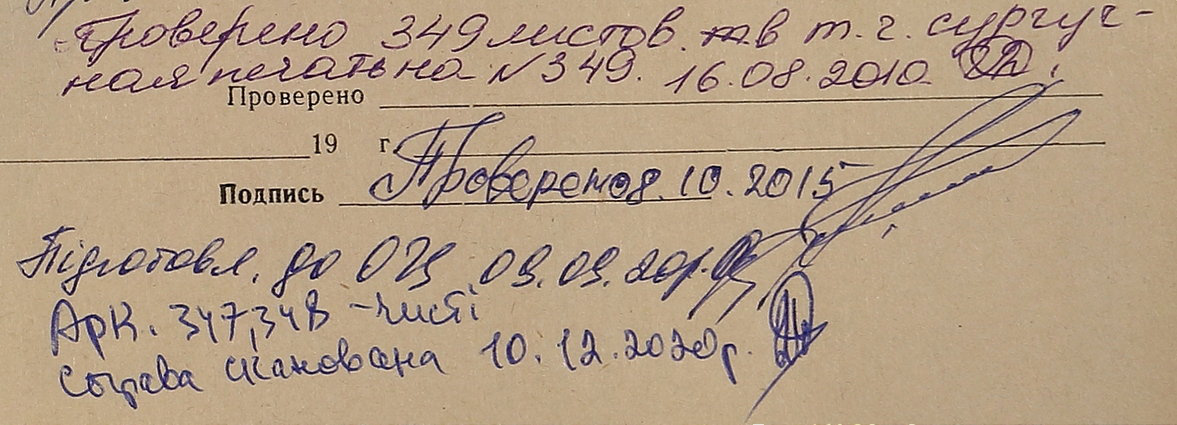 Проверено 349 листов. в т.ч. сургуч-
ная печать на № 349. 16.08.2010
Проверено
19 г.
Подпись Проверено 08.10.2015
Підготовл. до ОЦ. 09.09.20р.
Арк. 347, 348 - чисті
Справа сканована 10.12.2020р.